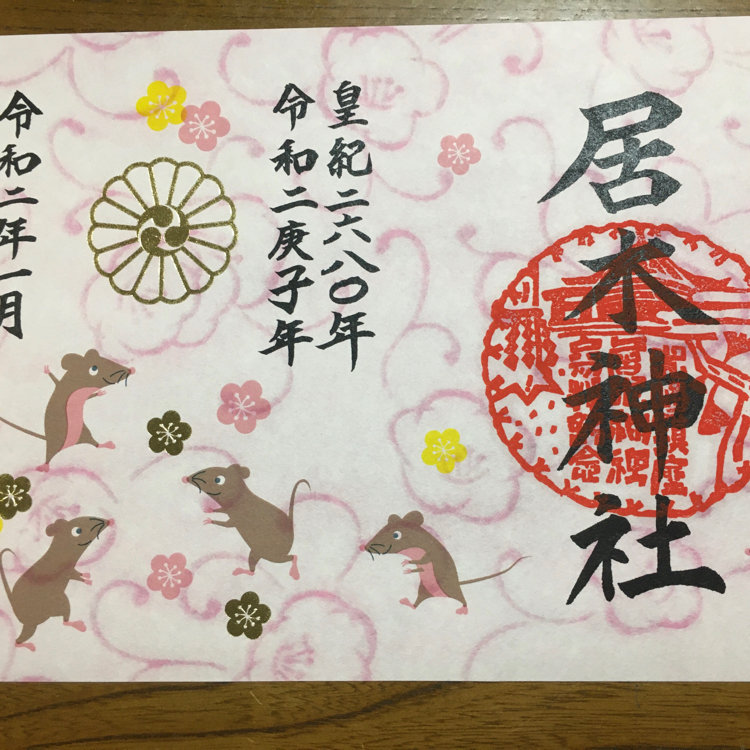 居木神社
皇紀二六八〇年
令和二庚子年
令和二年一月